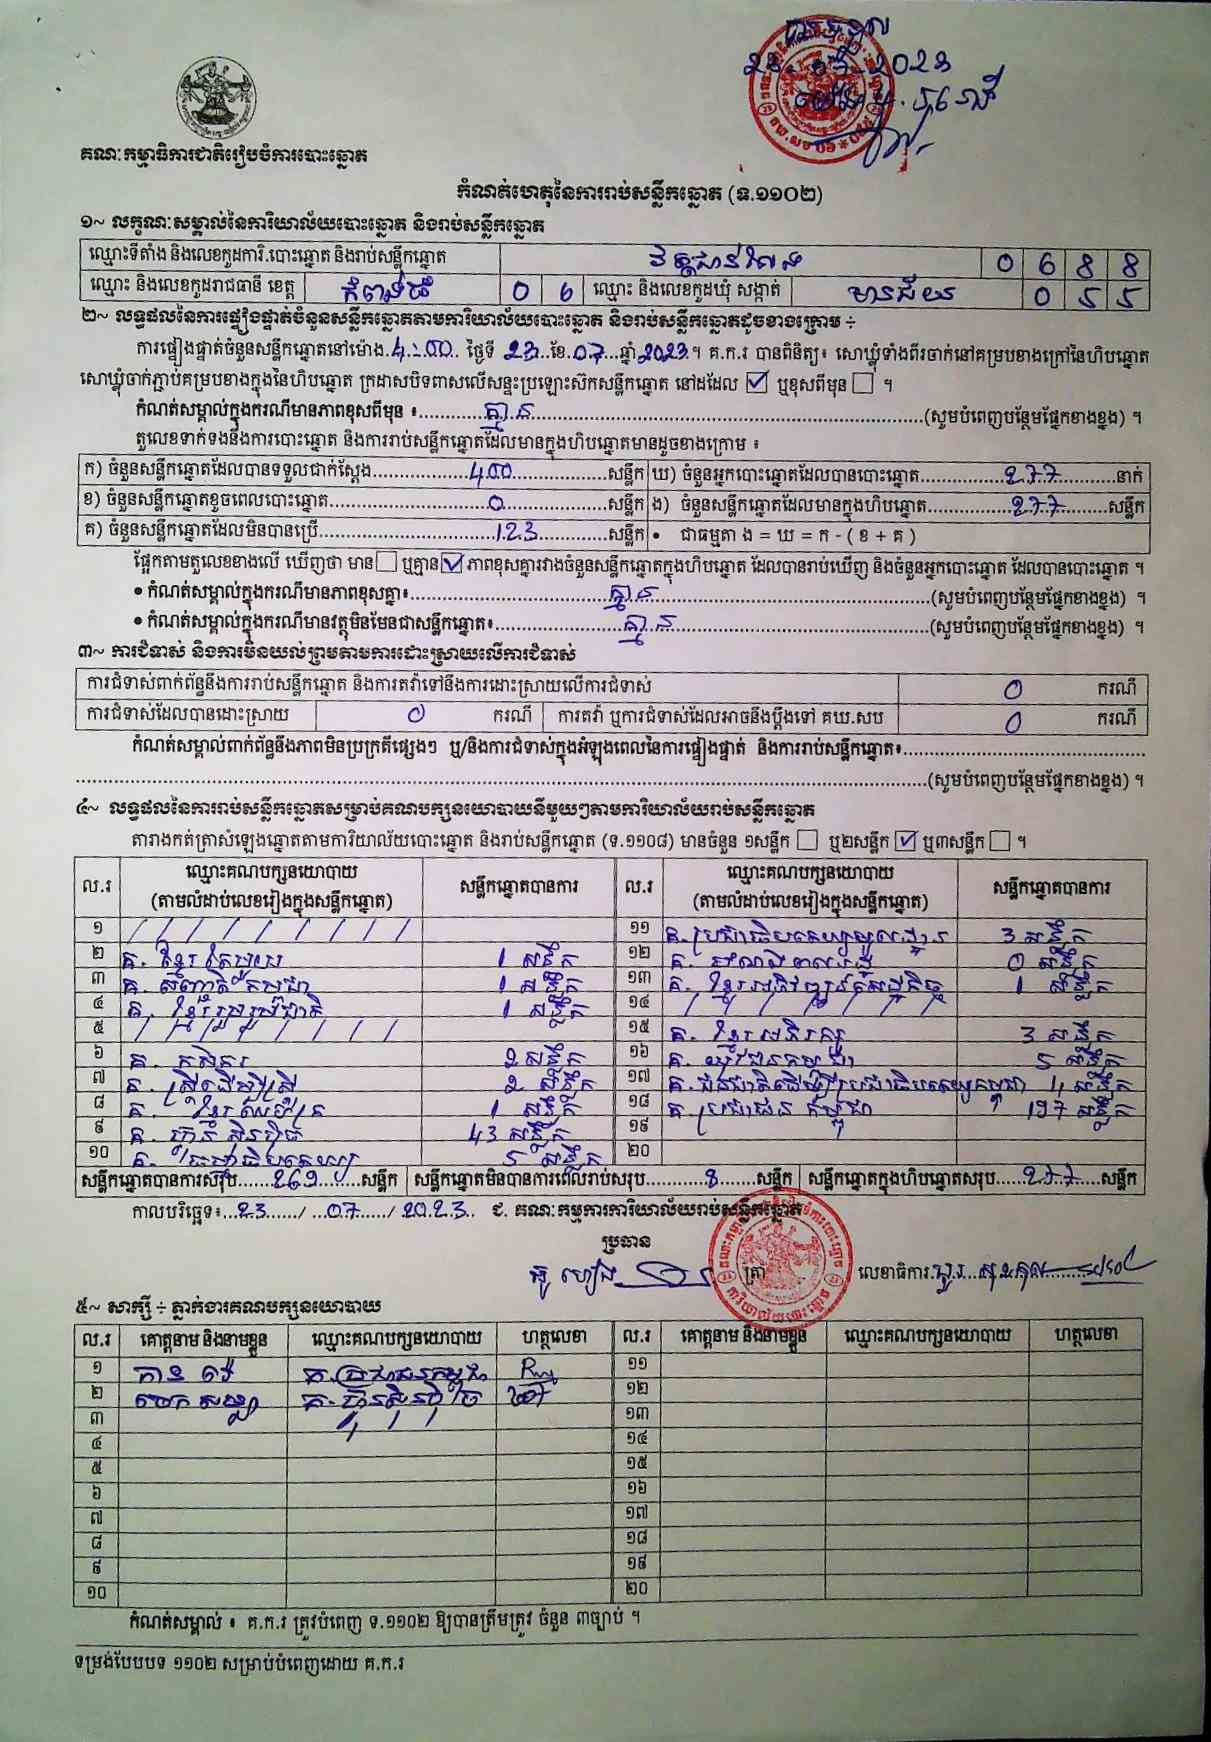 បានទទួល
គណៈកម្មាធិការជាតិរៀបចំការបោះឆ្នោត
កំណត់ហេតុនៃការរាប់សន្លឹកឆ្នោត (ទ.១១០២)
១~ លក្ខណៈសម្គាល់នៃការិយាល័យបោះឆ្នោត និងរាប់សន្លឹកឆ្នោត
ឈ្មោះទីតាំង និងលេខកូដការិ.បោះឆ្នោត និងរាប់សន្លឹកឆ្នោត 0 6 8 8
ឈ្មោះ និងលេខកូដរាជធានី ខេត្ត កំពង់ធំ 0 6 ឈ្មោះ និងលេខកូដឃុំ សង្កាត់ មានជ័យ 0 5 5
២~ លទ្ធផលនៃការផ្ទៀងផ្ទាត់ចំនួនសន្លឹកឆ្នោតតាមការិយាល័យបោះឆ្នោត និងរាប់សន្លឹកឆ្នោតដូចខាងក្រោម ÷
ការផ្ទៀងផ្ទាត់ចំនួនសន្លឹកឆ្នោតនៅម៉ោង.4:00.. ថ្ងៃទី 23..ខែ.07...ឆ្នាំ 2023.។ គ.ក.រ បានពិនិត្យ៖ សោឃ្លុំទាំងពីរចាក់នៅគម្របខាងក្រៅនៃហិបឆ្នោត
សោឃ្លុំចាក់ភ្ជាប់គម្របខាងក្នុងនៃហិបឆ្នោត ក្រដាសបិទពាសលើសន្ទះប្រឡោះស៊កសន្លឹកឆ្នោត នៅដដែល ☑ ឬខុសពីមុន ☐ ។
កំណត់សម្គាល់ក្នុងករណីមានភាពខុសពីមុន ៖..........គ្មាន..........(សូមបំពេញបន្ថែមផ្នែកខាងខ្នង) ។
តួលេខទាក់ទងនឹងការបោះឆ្នោត និងការរាប់សន្លឹកឆ្នោតដែលមានក្នុងហិបឆ្នោតមានដូចខាងក្រោម ៖
ក) ចំនួនសន្លឹកឆ្នោតដែលបានទទួលជាក់ស្តែង..........400..........សន្លឹក ឃ) ចំនួនអ្នកបោះឆ្នោតដែលបានបោះឆ្នោត..........277..........នាក់
ខ) ចំនួនសន្លឹកឆ្នោតខូចពេលបោះឆ្នោត..........0..........សន្លឹក ង) ចំនួនសន្លឹកឆ្នោតដែលមានក្នុងហិបឆ្នោត..........277..........សន្លឹក
គ) ចំនួនសន្លឹកឆ្នោតដែលមិនបានប្រើ..........123..........សន្លឹក • ជាធម្មតា ង = ឃ = ក - ( ខ + គ )
ផ្អែកតាមតួលេខខាងលើ ឃើញថា មាន ☐ ឬគ្មាន ☑ ភាពខុសគ្នារវាងចំនួនសន្លឹកឆ្នោតក្នុងហិបឆ្នោត ដែលបានរាប់ឃើញ និងចំនួនអ្នកបោះឆ្នោត ដែលបានបោះឆ្នោត ។
• កំណត់សម្គាល់ក្នុងករណីមានភាពខុសគ្នា៖..........គ្មាន..........(សូមបំពេញបន្ថែមផ្នែកខាងខ្នង) ។
• កំណត់សម្គាល់ក្នុងករណីមានវត្ថុមិនមែនជាសន្លឹកឆ្នោត៖..........គ្មាន..........(សូមបំពេញបន្ថែមផ្នែកខាងខ្នង) ។
៣~ ការជំទាស់ និងការមិនយល់ព្រមតាមការដោះស្រាយលើការជំទាស់
ការជំទាស់ពាក់ព័ន្ធនឹងការរាប់សន្លឹកឆ្នោត និងការតវ៉ាទៅនឹងការដោះស្រាយលើការជំទាស់ 0 ករណី
ការជំទាស់ដែលបានដោះស្រាយ 0 ករណី ការតវ៉ា ឬការជំទាស់ដែលអាចនឹងប្តឹងទៅ គឃ.សប 0 ករណី
កំណត់សម្គាល់ពាក់ព័ន្ធនឹងភាពមិនប្រក្រតីផ្សេងៗ ឬ/និងការជំទាស់ក្នុងអំឡុងពេលនៃការផ្ទៀងផ្ទាត់ និងការរាប់សន្លឹកឆ្នោត៖..........
..........(សូមបំពេញបន្ថែមផ្នែកខាងខ្នង) ។
៤~ លទ្ធផលនៃការរាប់សន្លឹកឆ្នោតសម្រាប់គណបក្សនយោបាយនីមួយៗតាមការិយាល័យរាប់សន្លឹកឆ្នោត
តារាងកត់ត្រាសំឡេងឆ្នោតតាមការិយាល័យបោះឆ្នោត និងរាប់សន្លឹកឆ្នោត (ទ.១១០៨) មានចំនួន ១សន្លឹក ☐ ឬ២សន្លឹក ☑ ឬ៣សន្លឹក ☐ ។
ល.រ ឈ្មោះគណបក្សនយោបាយ សន្លឹកឆ្នោតបានការ ល.រ ឈ្មោះគណបក្សនយោបាយ សន្លឹកឆ្នោតបានការ
(តាមលំដាប់លេខរៀងក្នុងសន្លឹកឆ្នោត) (តាមលំដាប់លេខរៀងក្នុងសន្លឹកឆ្នោត)
១ / / / / / / / / / ១១ គ. ប្រជាធិបតេយ្យមូលដ្ឋាន 3 សន្លឹក
២ គ. ខ្មែរតែមួយ 1 សន្លឹក ១២ គ. 0 សន្លឹក
៣ គ. សញ្ជាតិកម្ពុជា 1 សន្លឹក ១៣ គ. ខ្មែរអភិវឌ្ឍន៍សេដ្ឋកិច្ច 1 សន្លឹក
៤ គ. ខ្មែររួបរួមជាតិ 1 សន្លឹក ១៤ / / / / / / /
៥ / / / / / / / / ១៥ គ. ខ្មែរអភិរក្ស 3 សន្លឹក
៦ គ. កសិករ 2 សន្លឹក ១៦ គ. យុវជនកម្ពុជា 5 សន្លឹក
៧ គ. ស្ត្រីដើម្បីស្ត្រី 2 សន្លឹក ១៧ គ. ជនជាតិដើមប្រជាធិបតេយ្យកម្ពុជា សន្លឹក
៨ គ. ខ្មែរ 1 សន្លឹក ១៨ គ. ប្រជាជន កម្ពុជា 197 សន្លឹក
៩ គ. ហ៊្វុនស៊ិនប៉ិច 43 សន្លឹក ១៩
១០ គ. ធម្មាធិបតេយ្យ 5 សន្លឹក ២០
សន្លឹកឆ្នោតបានការសរុប......269......សន្លឹក សន្លឹកឆ្នោតមិនបានការពេលរាប់សរុប..........8......សន្លឹក សន្លឹកឆ្នោតក្នុងហិបឆ្នោតសរុប......277.....សន្លឹក
កាលបរិច្ឆេទ៖...23....../...07....../ 2023.. ជ. គណៈកម្មការការិយាល័យរាប់សន្លឹកឆ្នោត
ប្រធាន
ត្រា លេខាធិការ
៥~ សាក្សី ÷ ភ្នាក់ងារគណបក្សនយោបាយ
ល.រ គោត្តនាម និងនាមខ្លួន ឈ្មោះគណបក្សនយោបាយ ហត្ថលេខា ល.រ គោត្តនាម និងនាមខ្លួន ឈ្មោះគណបក្សនយោបាយ ហត្ថលេខា
១ គ.ប្រជាជនកម្ពុជា ១១
២ គ.ហ៊្វុនស៊ិនប៉ិច ១២
៣ ១៣
៤ ១៤
៥ ១៥
៦ ១៦
៧ ១៧
៨ ១៨
៩ ១៩
១០ ២០
កំណត់សម្គាល់ ៖ គ.ក.រ ត្រូវបំពេញ ទ.១១០២ ឱ្យបានត្រឹមត្រូវ ចំនួន ៣ច្បាប់ ។
ទម្រង់បែបបទ ១១០២ សម្រាប់បំពេញដោយ គ.ក.រ